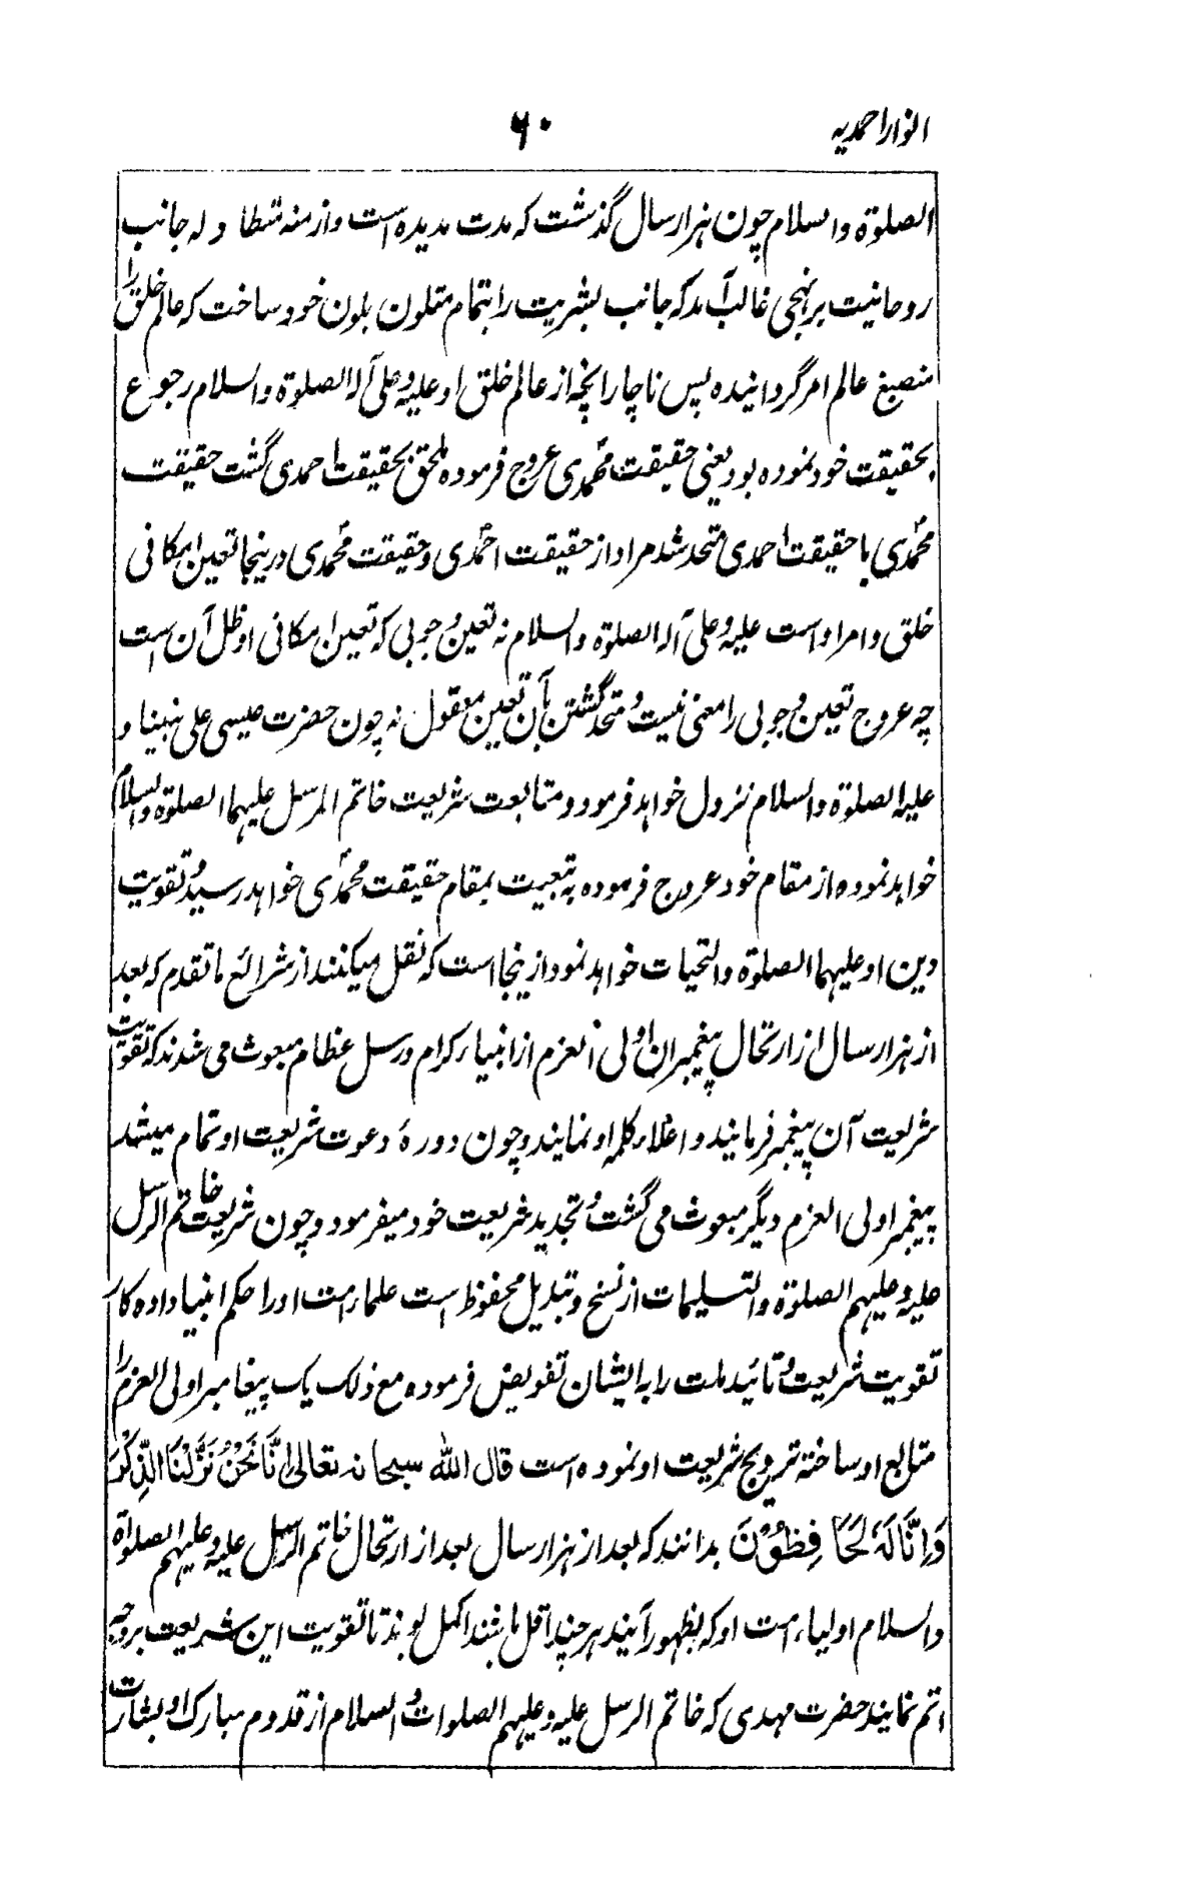 انوار احمدیہ
۶۰
الصلوٰة والسلام چون ہزار سال گذشت کہ مدت مدیدہ است و ازمنہ متطاولہ جانب
روحانیت بر نہجی غالب آمد کہ جانب بشریت را بتمام متلون بلون خود ساخت کہ عالم خلق را
منصبغ عالم امر گردانیدہ پس ناچار آنچہ از عالم خلق او علیہ و علیٰ آلہ الصلوة والسلام رجوع
بحقیقت خود نمودہ بود یعنی حقیقت محمدی عروج فرمودہ ملحق بحقیقت احمدی گشت حقیقت
محمدی با حقیقت احمدی متحد شد مراد از حقیقت احمدی و حقیقت محمدی درینجا تعین امکانی
خلق و امر اوست علیہ و علیٰ آلہ الصلوة والسلام نہ تعین وجوبی کہ تعین امکانی او ظل آن است
چہ عروج تعین وجوبی را معنی نیست و متحد گشتن بآن تعین معقول نہ چون حضرت عیسی علی نبینا و
علیہ الصلوة والسلام نزول خواہد فرمود و متابعت شریعت خاتم الرسل علیہما الصلوة والسلام
خواہد نمودہ از مقام خود عروج فرمودہ بہ تبعیت بمقام حقیقت محمدی خواہد رسید و تقویت
دین او علیہما الصلوة والتحیات خواہد نمود ازینجا است کہ نقل میکنند از شرائع ما تقدم کہ بعد
از ہزار سال از ارتحال پیغمبران اولی العزم از انبیاء کرام و رسل عظام مبعوث می شدند کہ تقویت
شریعت آن پیغمبر فرمایند و اعلاء کلمہ او نمایند و چون دورۂ دعوت شریعت او تمام میشد
پیغمبر اولی العزم دیگر مبعوث می گشت و تجدید شریعت خود میفرمود و چون شریعت خاتم الرسل
علیہ و علیہم الصلوة والتسلیمات از نسخ و تبدیل محفوظ است علماء امت او را حکم انبیا دادہ کار
تقویت شریعت و تائید ملت را بہ ایشان تفویض فرمودہ مع ذلک یک پیغامبر اولی العزم را
متابع او ساختہ ترویج شریعت او نمودہ است قال اللہ سبحانہ تعالی اِنَّا نَحْنُ نَزَّلْنَا الذِّکْرَ
وَاِنَّا لَهٗ لَحَافِظُوْنَ بدانند کہ بعد از ہزار سال بعد از ارتحال خاتم الرسل علیہ و علیہم الصلواة
والسلام اولیاء امت او کہ بظہور آیند ہر چند اقل باشند اکمل بوند تا تقویت این شریعت بر وجہ
اتم نمایند حضرت مہدی کہ خاتم الرسل علیہ و علیہم الصلوات والسلام از قدوم مبارک او بشارت